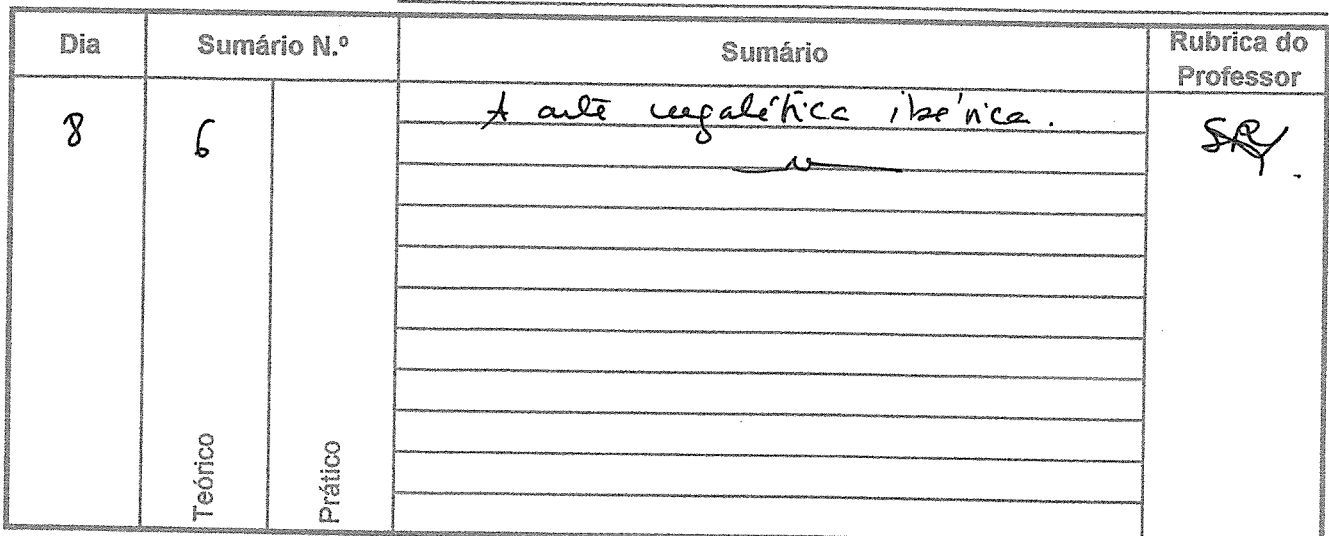 Dia Sumário N.º Sumário Rubrica do Professor
8 6 A arte megalítica ibérica.
Teórico Prático